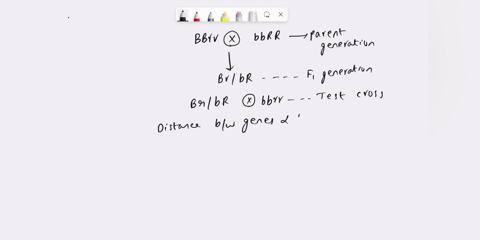 BBrr ⊗ bbRR → parent
generation
↓
Br/bR ---- F₁ generation
Br/bR ⊗ bbrr --- Test cross
Distance b/w genes α '